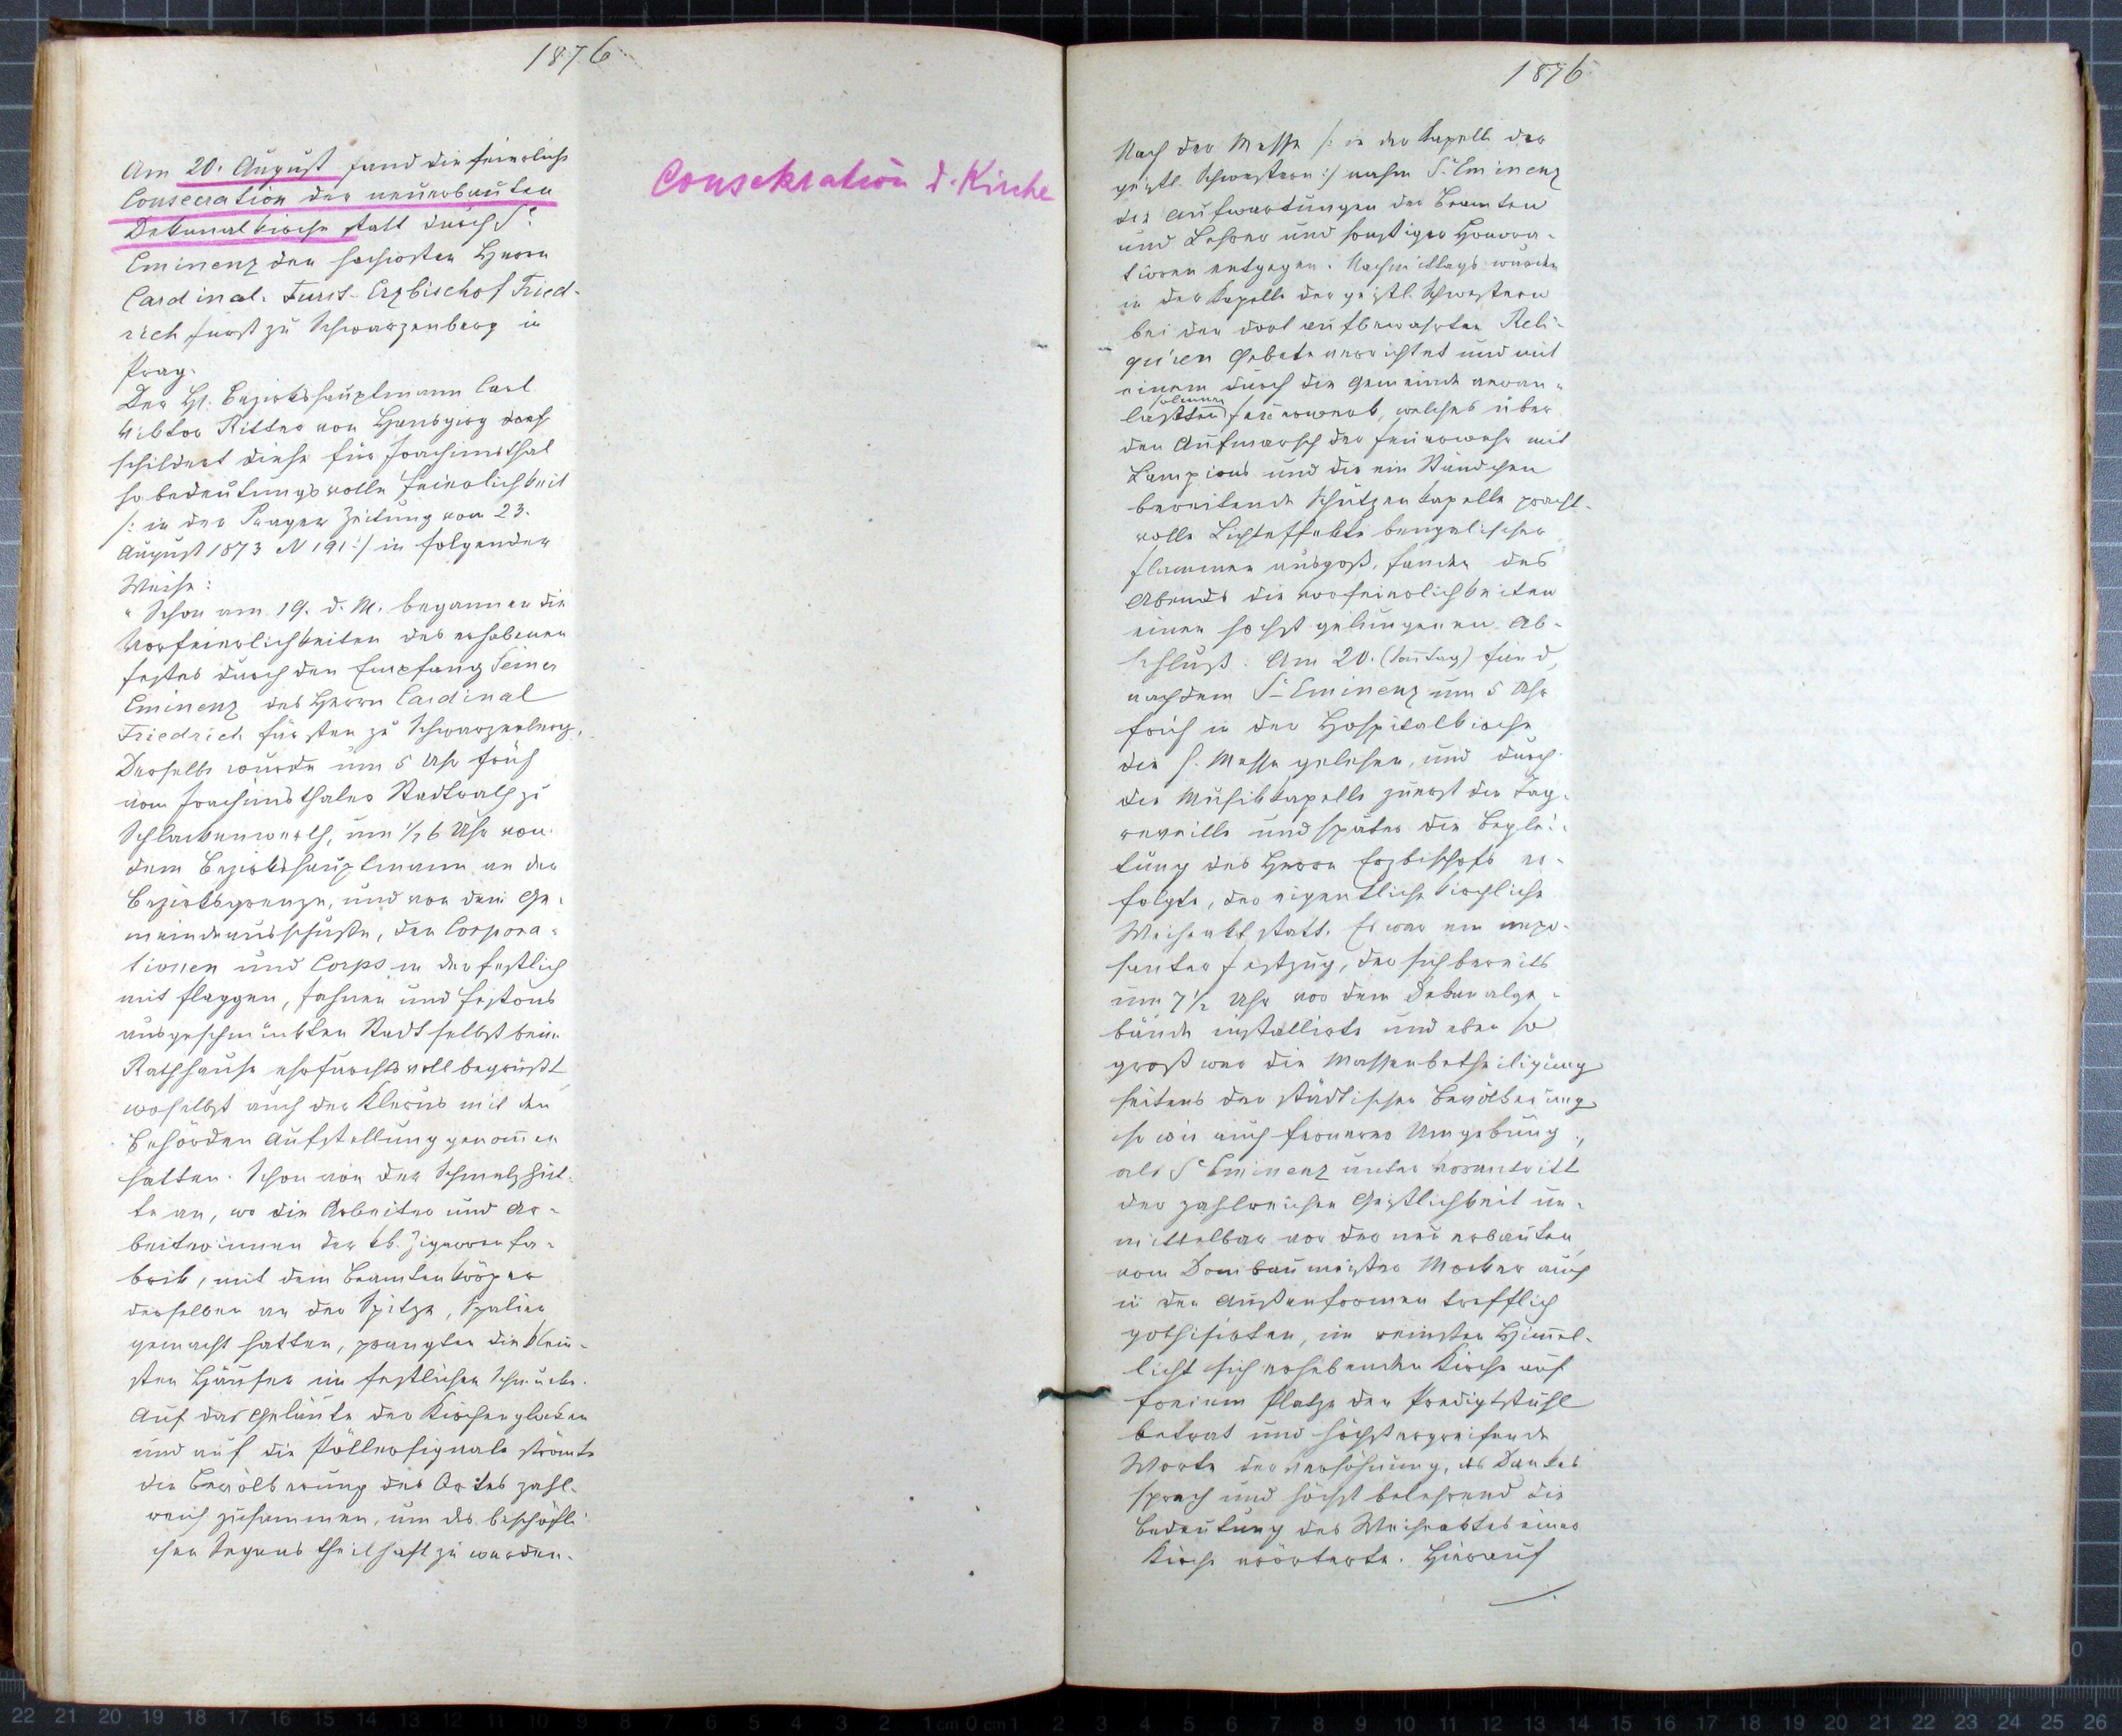 1876
Am 20. August fand die feierliche
Consecration der neuerbauten
Dekanalkirche statt durch Sᵉ
Eminenz den hochwsten Herrn
Cardinal. Fürst-Erzbischof Fried-
rich Fürst zu Schwarzenberg in
Prag.
Der H. Bezirkshauptmann Carl
Viktor Ritter von Hansgirg
schildert diese für Joachimsthal
so bedeutungsvolle Feierlichkeit
/: in der Prager Zeitung vom 23.
August 1873 N 191 :/ in folgender
Weise:
"Schon am 19. d. M. begannen die
Vorfeierlichkeiten des erhabenen
Festes durch den Empfang Seiner
Eminenz des Herrn Cardinal
Friedrich Fürsten zu Schwarzenberg.
Derselbe wurde um 5 Uhr früh
vom Joachimsthaler Stadtrath zu
Schlackenwerth, um 1/2 6 Uhr von
dem Bezirkshauptmann an der
Bezirksgrenze, und von dem Ge-
meindeausschuße, den Corpora-
tionen und Corps in der festlich
mit Flaggen, Fahnen und Festons
ausgeschmückten Stadt selbst beim
Rathhause ehrfurchtsvoll begrüßt
woselbst auch der Klerus mit den
Behörden Aufstellung genom̅en
hatten. Schon von der Schmelzhüt-
te an, wo die Arbeiter und Ar-
beiterinnen der kk. Zigarrenfa-
brik, mit dem Beamtenkörper
derselben an der Spitze, Spalier
gemacht hatten, prangten die klein-
sten Häuser im festlichen Schmucke.
Auf das Geläute der Kirchenglocken
und auf die Pöllersignale strömte
die Bevölkerung des Ortes zahl-
reich zusammen, um des bischöfli-
chen Segens theilhaft zu werden.
Consekration d. Kirche
1876
Nach der Messe /: in der Kapelle der
geistl. Schwestern :/ nahm Sᵉ Eminenz
die Aufwartungen der Beamten
und Lehrer und sonstiger Honora-
tioren entgegen. Nachmittags wurden
in der Kapelle der geistl. Schwestern
bei den dort aufbewahrten Reli-
quien Gebete verrichtet und mit
einem durch die Gemeinde veran-
solennen
laßten Feuerwerk, welches über
den Aufmarsch der Feuerwehr mit
Lampions und die ein Ständchen
bereitende Schützenkapelle pracht-
volle Lichteffekte bengalischer
Flammen ausgoß, fanden des
Abends die Vorfeierlichkeiten
einen höchst gelungenen Ab-
schluß. Am 20. (Son̅tag) fand,
nachdem Sᵉ Eminenz um 5 Uhr
früh in der Hospitalkirche
die h. Messe gelesen, und durch
die Musikkapelle zuerst die Tag-
reveille und später die Beglei-
tung des Herrn Erzbischofs er-
folgte, der eigentliche kirchliche
Weiheakt statt. Es war ein impo-
santer Festzug, der sich bereits
um 7 1/2 Uhr vor dem Dekanalge-
bäude installirte und eben so
groß war die Massenbetheiligung
seitens der städtischen Bevölkerung
so wie auch fernerer Umgebung,
als Sᵉ Eminenz unter Vorantritt
der zahlreichen Geistlichkeit un-
mittelbar vor der neu erbauten,
vom Dombaumeister Mocker auch
in den Außenformen trefflich
gothisirten, im reinsten Him̅el-
licht sich erhebenden Kirche auf
freiem Platze den Predigtstuhl
betrat und höchst ergreifende
Worte der Versöhnung, des Dankes
sprach und höchst belehrend die
Bedeutung des Weiheaktes einer
Kirche erörterte. Hierauf
22 21 20 19 18 17 16 15 14 13 12 11 10 9 8 7 6 5 4 3 2 1 cm 0 cm 1 2 3 4 5 6 7 8 9 10 11 12 13 14 15 16 17 18 19 20 21 22 23 24 25 26